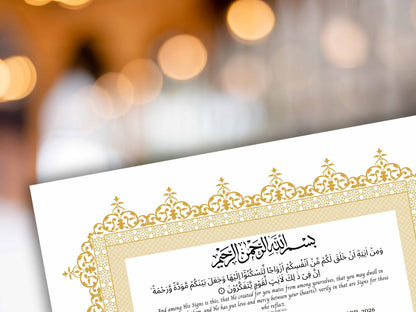 بسم الله الرحمن الرحيم
وَمِنْ آيَاتِهِ أَنْ خَلَقَ لَكُمْ مِنْ أَنْفُسِكُمْ أَزْوَاجًا لِتَسْكُنُوا إِلَيْهَا وَجَعَلَ بَيْنَكُمْ مَوَدَّةً وَرَحْمَةً
إِنَّ فِي ذَلِكَ لَآيَاتٍ لِقَوْمٍ يَتَفَكَّرُونَ
And among His Signs is this, that He created for you mates from among yourselves, that you may dwell in
and He has put love and mercy between your (hearts): verily in that are Signs for those
who reflect.
2026